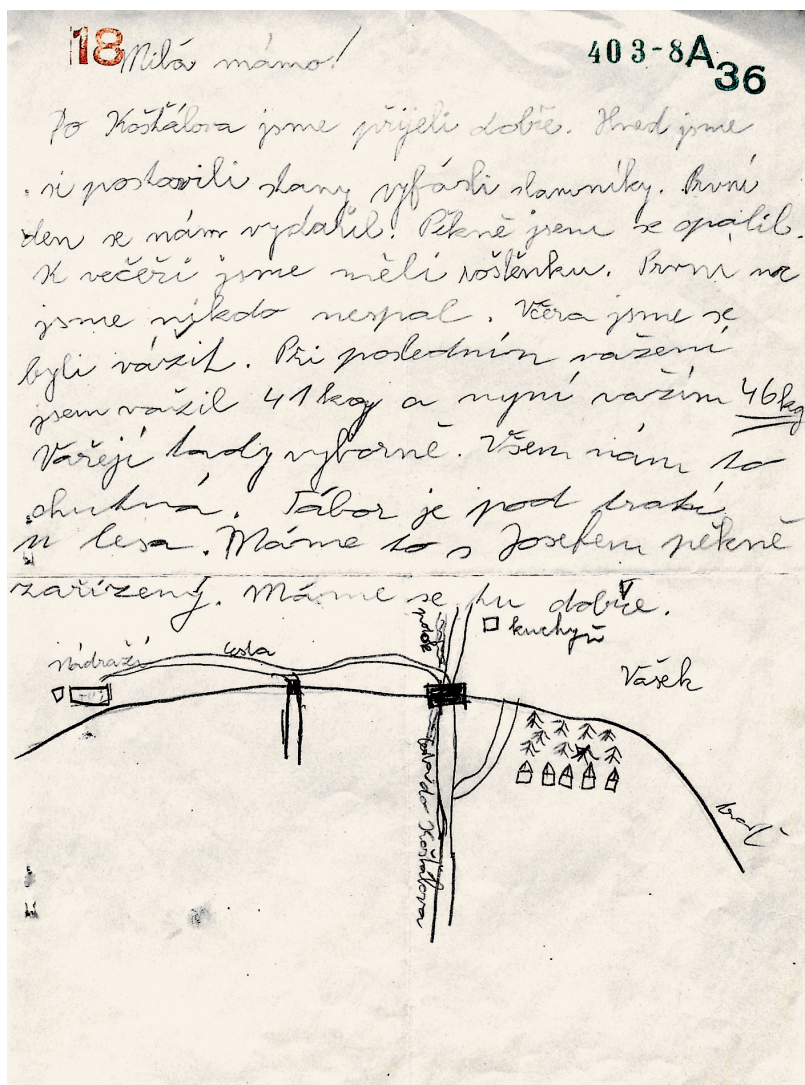 18
403-8A36
Milá mámo!
Do Košťálova jsme přijeli dobře. Hned jsme
si postavili stany vyfásli slamníky. První
den se nám vydařil. Pěkně jsem se opálil.
K večeři jsme měli roštěnku. První noc
jsme nikdo nespal. Včera jsme se
byli vážit. Při posledním vážení
jsem vážil 41kg a nyní vážím 46kg
Vařejí tady výborně. Všem nám to
chutná. Tábor je pod tratí
u lesa. Máme to s Josefem pěkně
zařízený. Máme se tu dobře.
potok
kuchyň
nádraží
cesta
Vašek
do Košťálova
trať